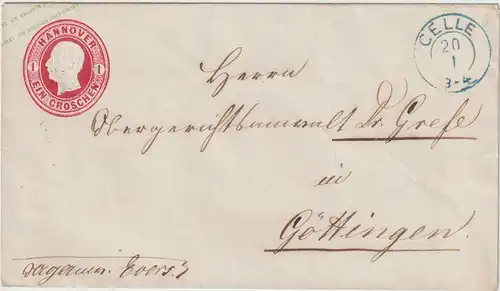 HANNOVER
1 1
EIN GROSCHEN
CELLE
20
1
3-4
Herrn
Obergerichtsanwalt Dr. Grefe
in
Göttingen.
Evers.